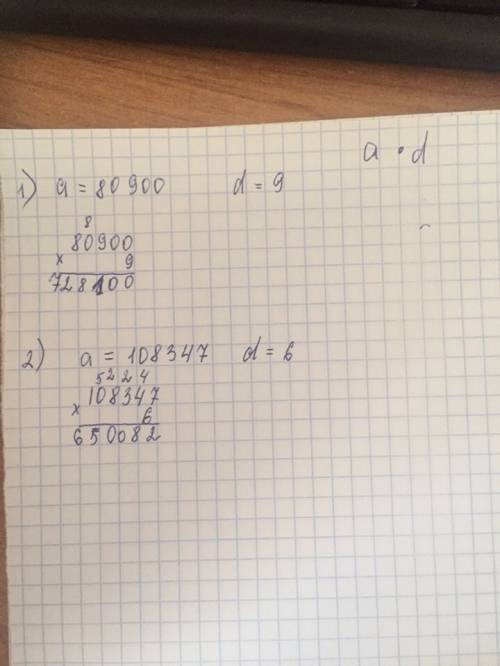 a · d
1) a = 80900 d = 9
8
80900
× 9
728100
2) a = 108347 d = 6
5 2 2 4
108347
× 6
650082